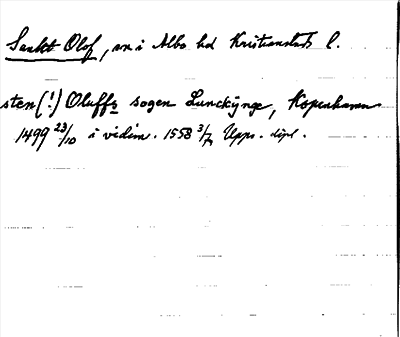 Sankt Olof, sn i Albo hd Kristianstads l.
sten (!) Oluffz sogen Lunckynge, Kopenhamn
1499 23/10 i vidim. 1558 3/7 Upps. dipl.